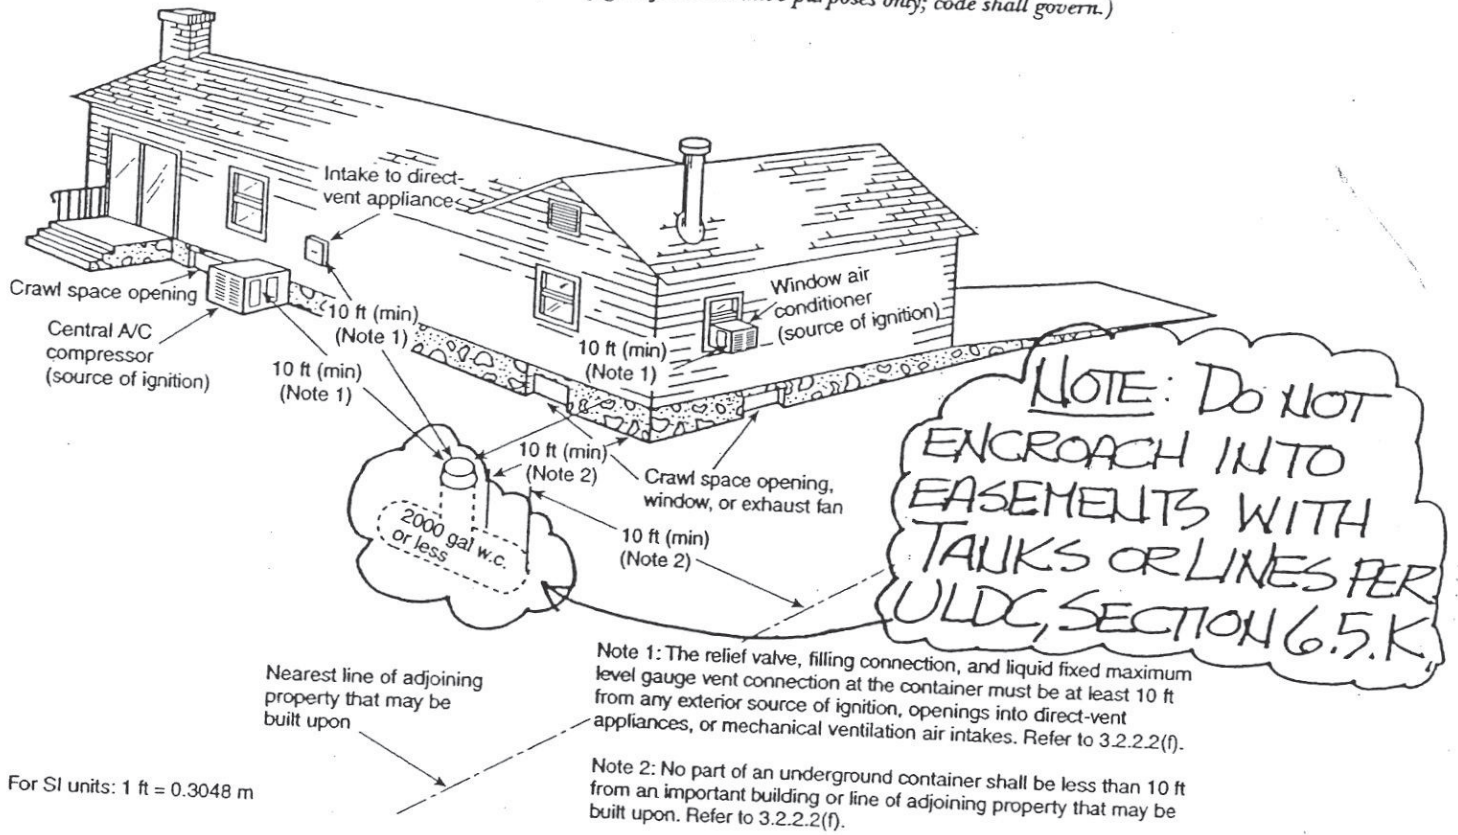 purposes only; code shall govern.)
Intake to direct-
vent appliance
Crawl space opening
Central A/C
compressor
(source of ignition)
10 ft (min)
(Note 1)
10 ft (min)
(Note 1)
Window air
conditioner
(source of ignition)
10 ft (min)
(Note 1)
10 ft (min)
(Note 2)
Crawl space opening,
window, or exhaust fan
10 ft (min)
(Note 2)
2000 gal w.c.
or less
NOTE: DO NOT
ENCROACH INTO
EASEMENTS WITH
TANKS OR LINES PER
ULDC, SECTION 6.5.K,
Nearest line of adjoining
property that may be
built upon
Note 1: The relief valve, filling connection, and liquid fixed maximum
level gauge vent connection at the container must be at least 10 ft
from any exterior source of ignition, openings into direct-vent
appliances, or mechanical ventilation air intakes. Refer to 3.2.2.2(f).
Note 2: No part of an underground container shall be less than 10 ft
from an important building or line of adjoining property that may be
built upon. Refer to 3.2.2.2(f).
For SI units: 1 ft = 0.3048 m